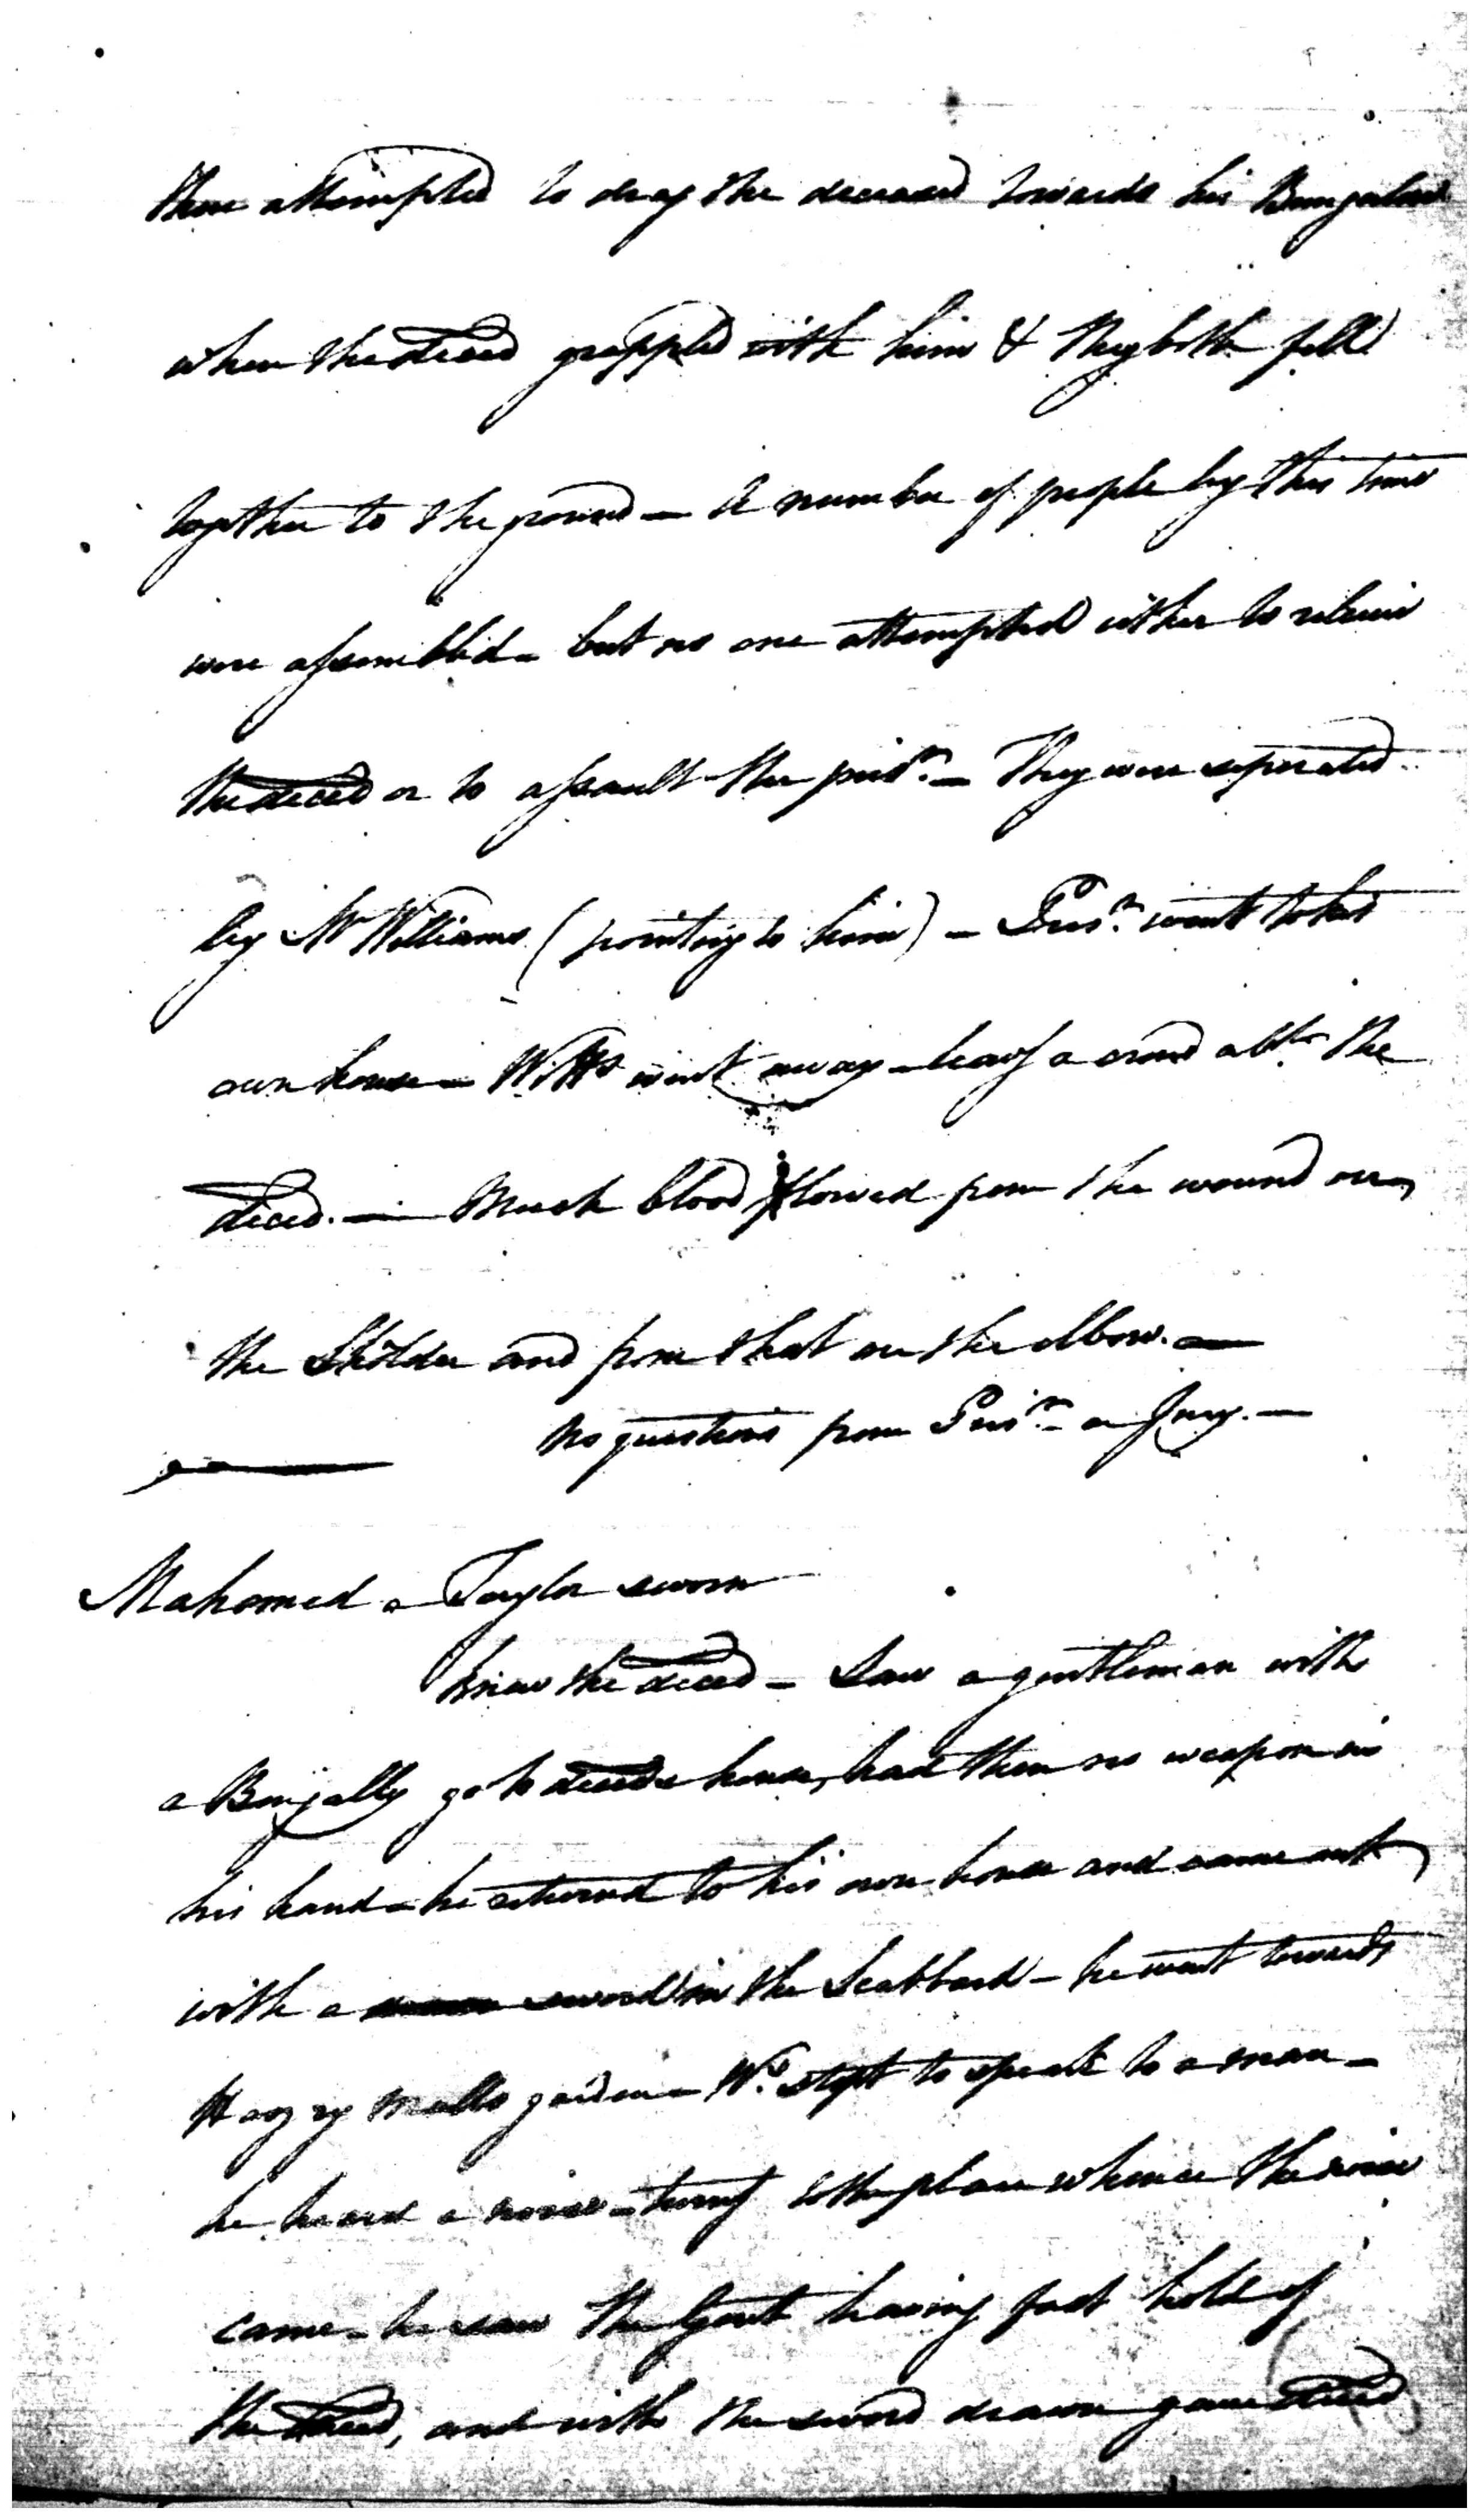 then attempted to drag the deceased towards his Bungalow
when the deced grappled with him & they both fell
together to the ground — A number of people by this time
were assembled — but no one attempted either to relieve
the deced or to assault the prisr. — They were separated
by Mr Williams (pointing to him) — Prisr. went to his
own house — went away — leavg a crowd abt. the
deced. — Much blood flowed from the wound on
the Sholder and from that on the elbow. —
No questions from Prisr. or Jury. —
Mahomed a Taylor sworn
knew the deced — Saw a gentleman with
a Bengally go to deceds house, had then no weapon in
his hand — he returned to his own house and came out
with a sword in the Scabbard — he went towards
garden — Ws. stopt to speak to a man —
he heard a noise — turng to the place whence the noise
came — he saw the Gent having fast hold of
the deced, and with the sword drawn gave deced